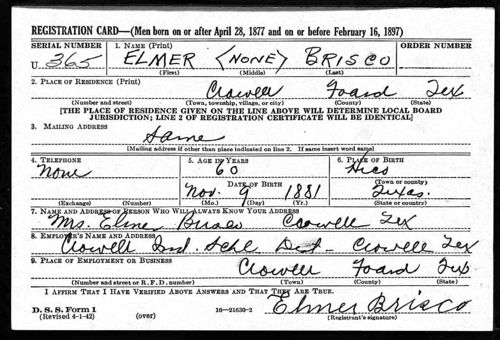 REGISTRATION CARD—(Men born on or after April 28, 1877 and on or before February 16, 1897)
SERIAL NUMBER 1. NAME (Print) ORDER NUMBER
U. 365 ELMER (NONE) BRISCO
(First) (Middle) (Last)
2. PLACE OF RESIDENCE (Print)
Crowell Foard Tex
(Number and street) (Town, township, village, or city) (County) (State)
[THE PLACE OF RESIDENCE GIVEN ON THE LINE ABOVE WILL DETERMINE LOCAL BOARD
JURISDICTION; LINE 2 OF REGISTRATION CERTIFICATE WILL BE IDENTICAL]
3. MAILING ADDRESS
Same
[Mailing address if other than place indicated on line 2. If same insert word same]
4. TELEPHONE 5. AGE IN YEARS 6. PLACE OF BIRTH
None 60 Hico
DATE OF BIRTH (Town or county)
Nov. 9 1881 Texas.
(Exchange) (Number) (Mo.) (Day) (Yr.) (State or country)
7. NAME AND ADDRESS OF PERSON WHO WILL ALWAYS KNOW YOUR ADDRESS
Mrs. Brisco Crowell Tex
8. EMPLOYER'S NAME AND ADDRESS
Crowell Ind. Schl Dist - Crowell Tex
9. PLACE OF EMPLOYMENT OR BUSINESS
Crowell Foard Tex
(Number and street or R. F. D. number) (Town) (County) (State)
I AFFIRM THAT I HAVE VERIFIED ABOVE ANSWERS AND THAT THEY ARE TRUE.
D. S. S. Form 1 Elmer Brisco
(Revised 4-1-42) (over) 16—21630-2 (Registrant's signature)